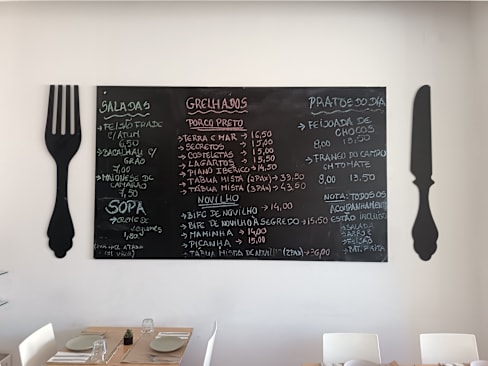 SALADAS
→ FEIJÃO FRADE
C/ATUM
6,50
→ BACALHAU C/
GRÃO
7,00
→ MAIONESE DE
CAMARÃO
7,50
SOPA
→ CREME DE
LEGUMES
1,80
GRELHADOS
PORCO PRETO
→ TERRA E MAR → 16,50
→ SECRETOS → 15,00
→ COSTELETAS → 15,00
→ LAGARTOS → 15,00
→ PIANO IBÉRICO → 14,50
→ TÁBUA MISTA (2PAX) → 33,50
→ TÁBUA MISTA → 43,50
NOVILHO
→ BIFE DE NOVILHO → 14,00
→ BIFE DE NOVILHO À SEGREDO → 15,50
→ MAMINHA → 14,00
→ PICANHA → 15,00
→ TÁBUA MISTA DE NOVILHO (2PAX) → 36,00
PRATOS DO DIA
→ FEIJOADA DE
CHOCOS
8,00 13,50
→ FRANGO DO CAMPO
C/TOMATE
8,00 13,50
NOTA: TODOS OS
ACOMPANHAMENTOS
ESTÃO INCLUÍDOS
SALADA
ARROZ
FEIJÃO
BAT. FRITA